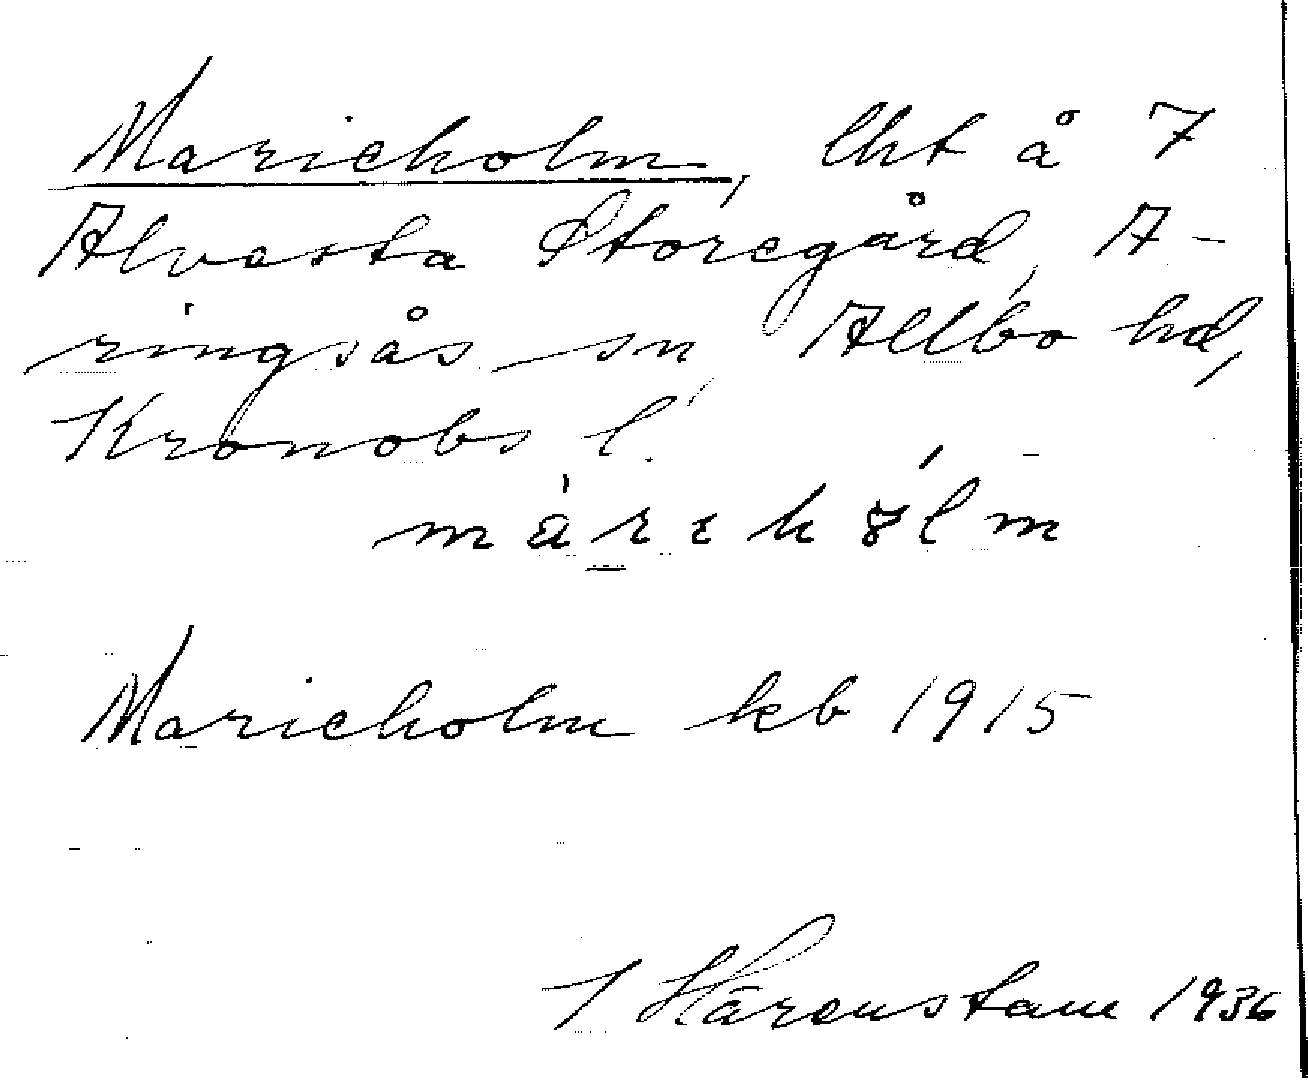 Marieholm, lht å 7
Alvesta Storegård, A-
ringsås sn, Allbo hd,
Kronobs l.
Marieholm kb 1915
I Härenstam 1936